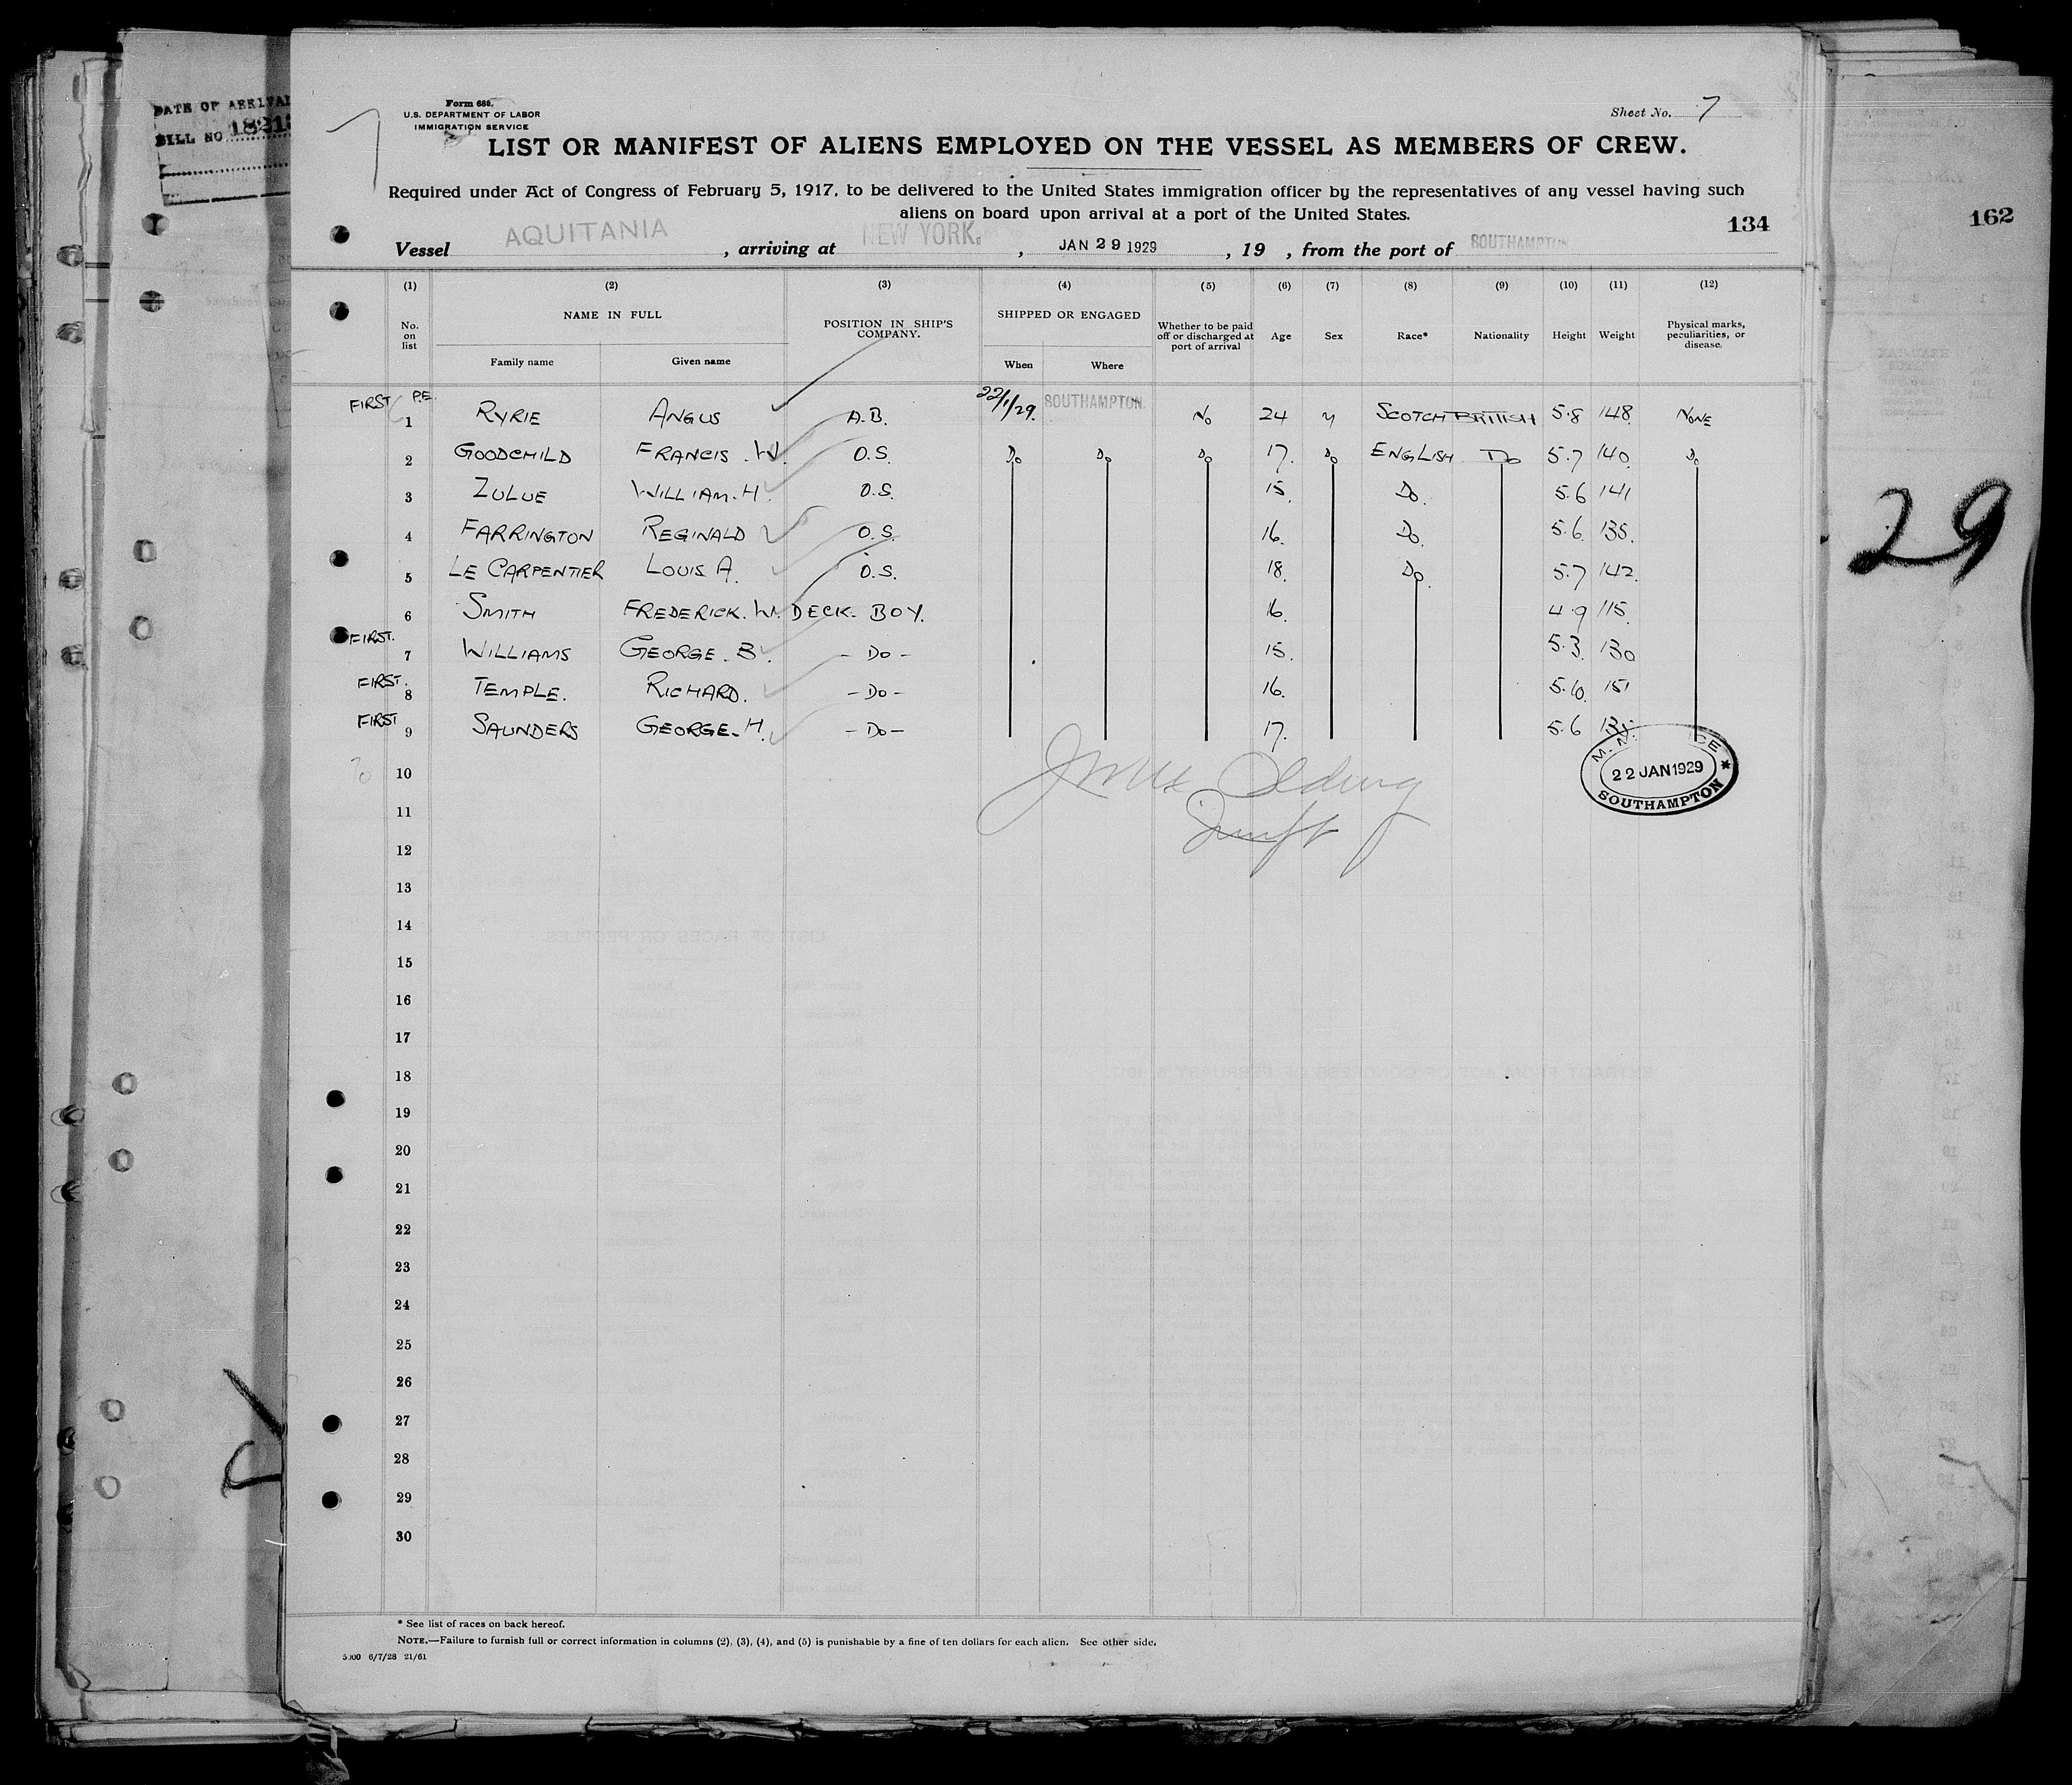 DATE OF ARRIVAL
BILL NO
Form 686.
U.S. DEPARTMENT OF LABOR
IMMIGRATION SERVICE
Sheet No. 7
LIST OR MANIFEST OF ALIENS EMPLOYED ON THE VESSEL AS MEMBERS OF CREW.
Required under Act of Congress of February 5, 1917, to be delivered to the United States immigration officer by the representatives of any vessel having such
aliens on board upon arrival at a port of the United States.
134
162
Vessel AQUITANIA, arriving at NEW YORK., JAN 29 1929, 19 , from the port of SOUTHAMPTON
(1) (2) (3) (4) (5) (6) (7) (8) (9) (10) (11) (12)
No. on list NAME IN FULL POSITION IN SHIP'S COMPANY. SHIPPED OR ENGAGED Whether to be paid off or discharged at port of arrival Age Sex Race* Nationality Height Weight Physical marks, peculiarities, or disease.
Family name Given name When Where
FIRST P.E. 1 RYRIE ANGUS A.B. 22/1/29. SOUTHAMPTON. No 24 M SCOTCH BRITISH 5.8 148. NONE
2 GOODCHILD FRANCIS .W. O.S. Do Do Do 17. Do ENGLISH Do 5.7 140. Do
3 ZULUE WILLIAM.H. O.S. 15. Do. 5.6 141
4 FARRINGTON REGINALD O.S. 16. Do. 5.6. 135.
5 LE CARPENTIER LOUIS A. O.S. 18. Do. 5.7 142.
6 SMITH FREDERICK.W. DECK. BOY. 16. 4.9 115.
FIRST. 7 WILLIAMS GEORGE. B. - Do - 15. 5.3. 130
FIRST. 8 TEMPLE. RICHARD. - Do - 16. 5.10. 151
FIRST 9 SAUNDERS GEORGE. H. - Do - 17. 5.6 135
29
22 JAN 1929
SOUTHAMPTON
10
11
12
13
14
15
16
17
18
19
20
21
22
23
24
25
26
27
28
29
30
* See list of races on back hereof.
NOTE.—Failure to furnish full or correct information in columns (2), (3), (4), and (5) is punishable by a fine of ten dollars for each alien. See other side.
5000 6/7/28 21/61